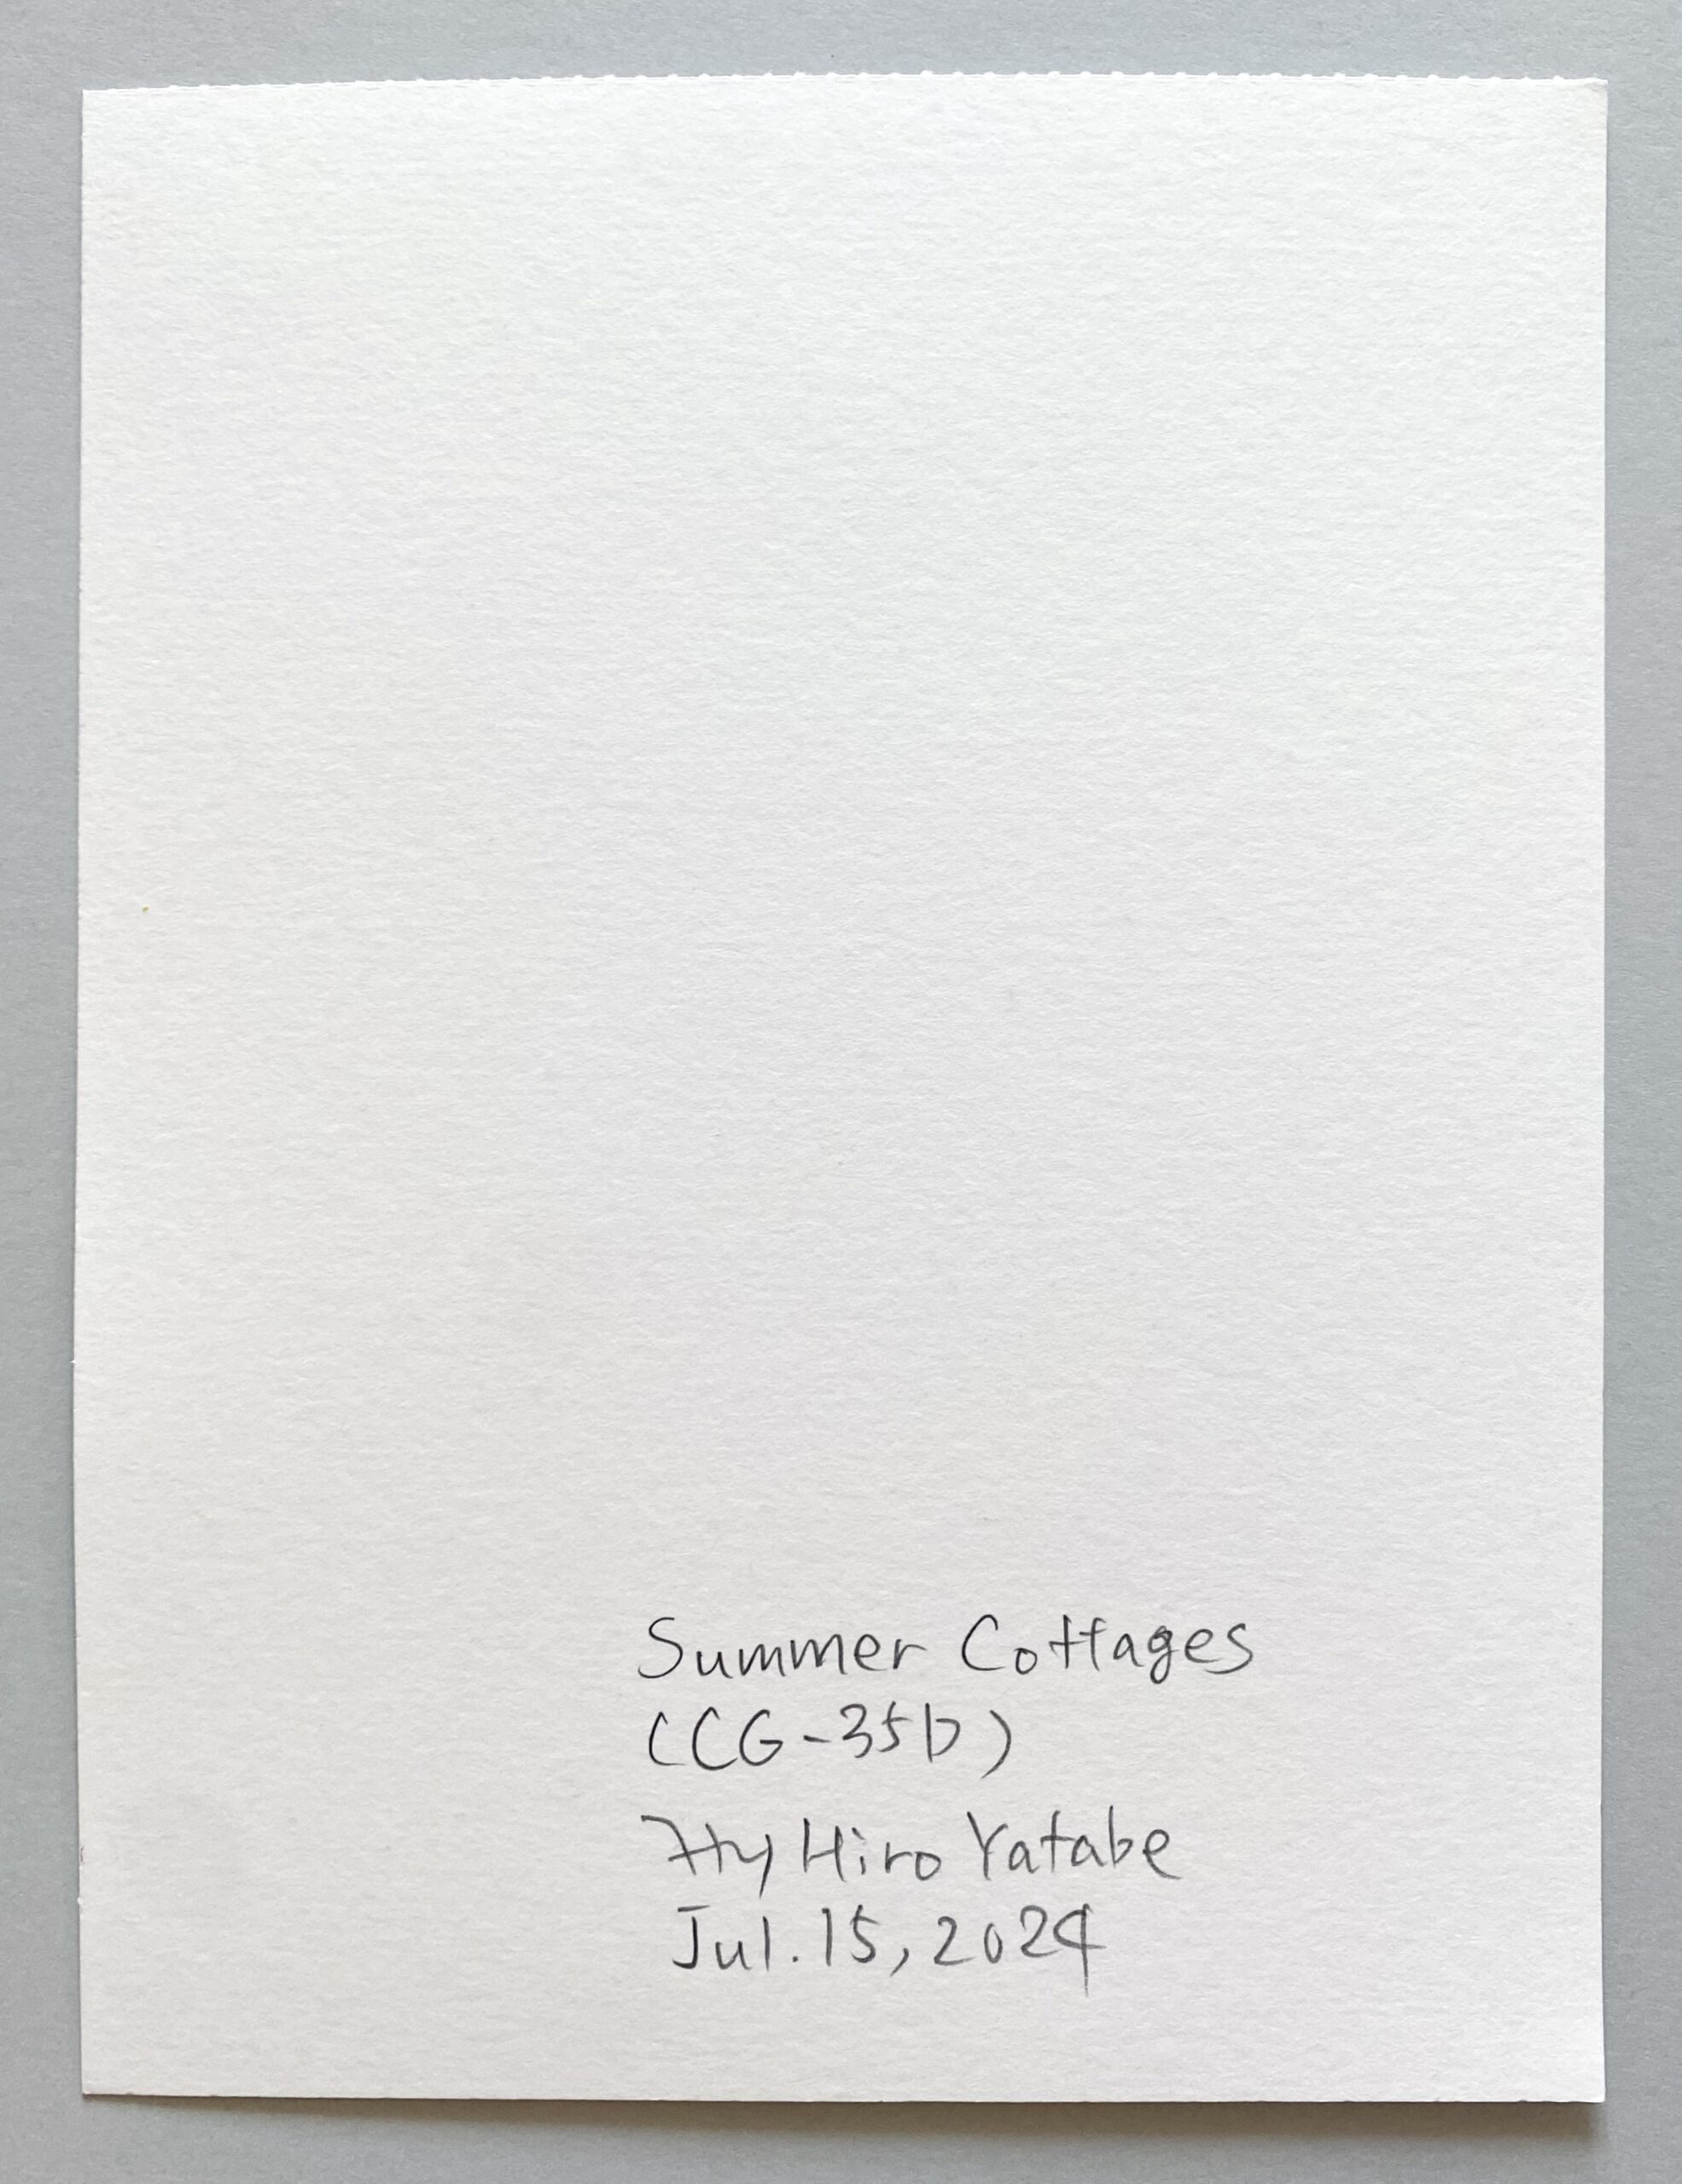 Summer Cottages
(CCG-35b)
Hiro Yatabe
Jul. 15, 2024